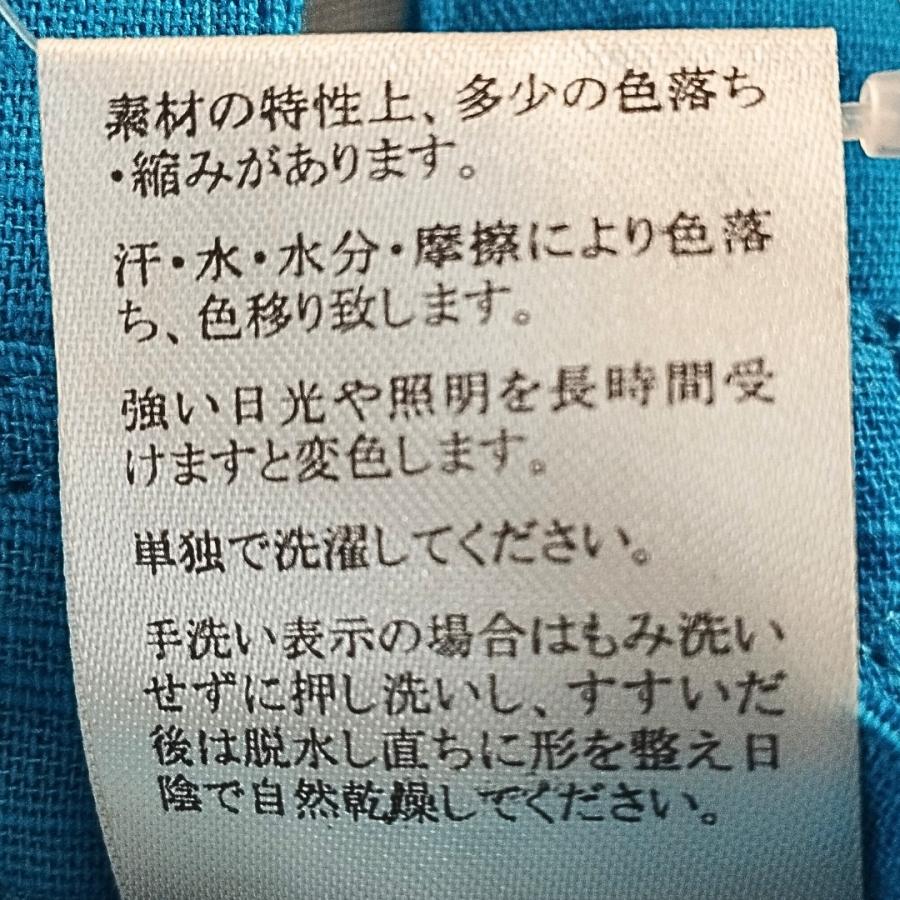 素材の特性上、多少の色落ち
・縮みがあります。
汗・水・水分・摩擦により色落
ち、色移り致します。
強い日光や照明を長時間受
けますと変色します。
単独で洗濯してください。
手洗い表示の場合はもみ洗い
せずに押し洗いし、すすいだ
後は脱水し直ちに形を整え日
陰で自然乾燥してください。